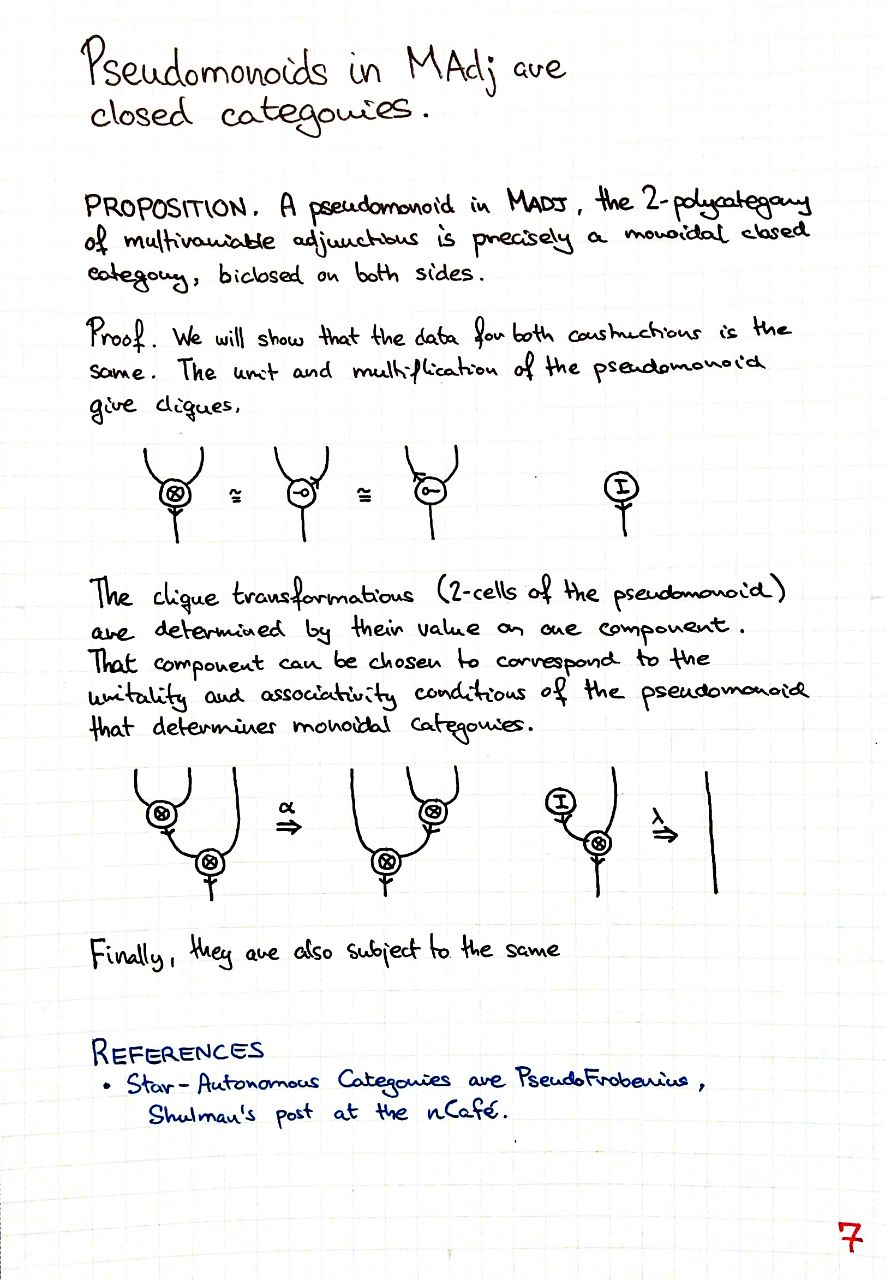 Pseudomonoids in MAdj are
closed categories.
PROPOSITION. A pseudomonoid in MADJ, the 2-polycategory
of multivariable adjunctions is precisely a monoidal closed
category, biclosed on both sides.
Proof. We will show that the data for both constructions is the
same. The unit and multiplication of the pseudomonoid
give cliques,
⊗ ≅ ⊸ ≅ ⟜ I
The clique transformations (2-cells of the pseudomonoid)
are determined by their value on one component.
That component can be chosen to correspond to the
unitality and associativity conditions of the pseudomonoid
that determines monoidal categories.
⊗ ⊗ α ⇒ ⊗ ⊗ I ⊗ λ ⇒
Finally, they are also subject to the same
REFERENCES
• Star-Autonomous Categories are PseudoFrobenius,
Shulman's post at the nCafé.
7